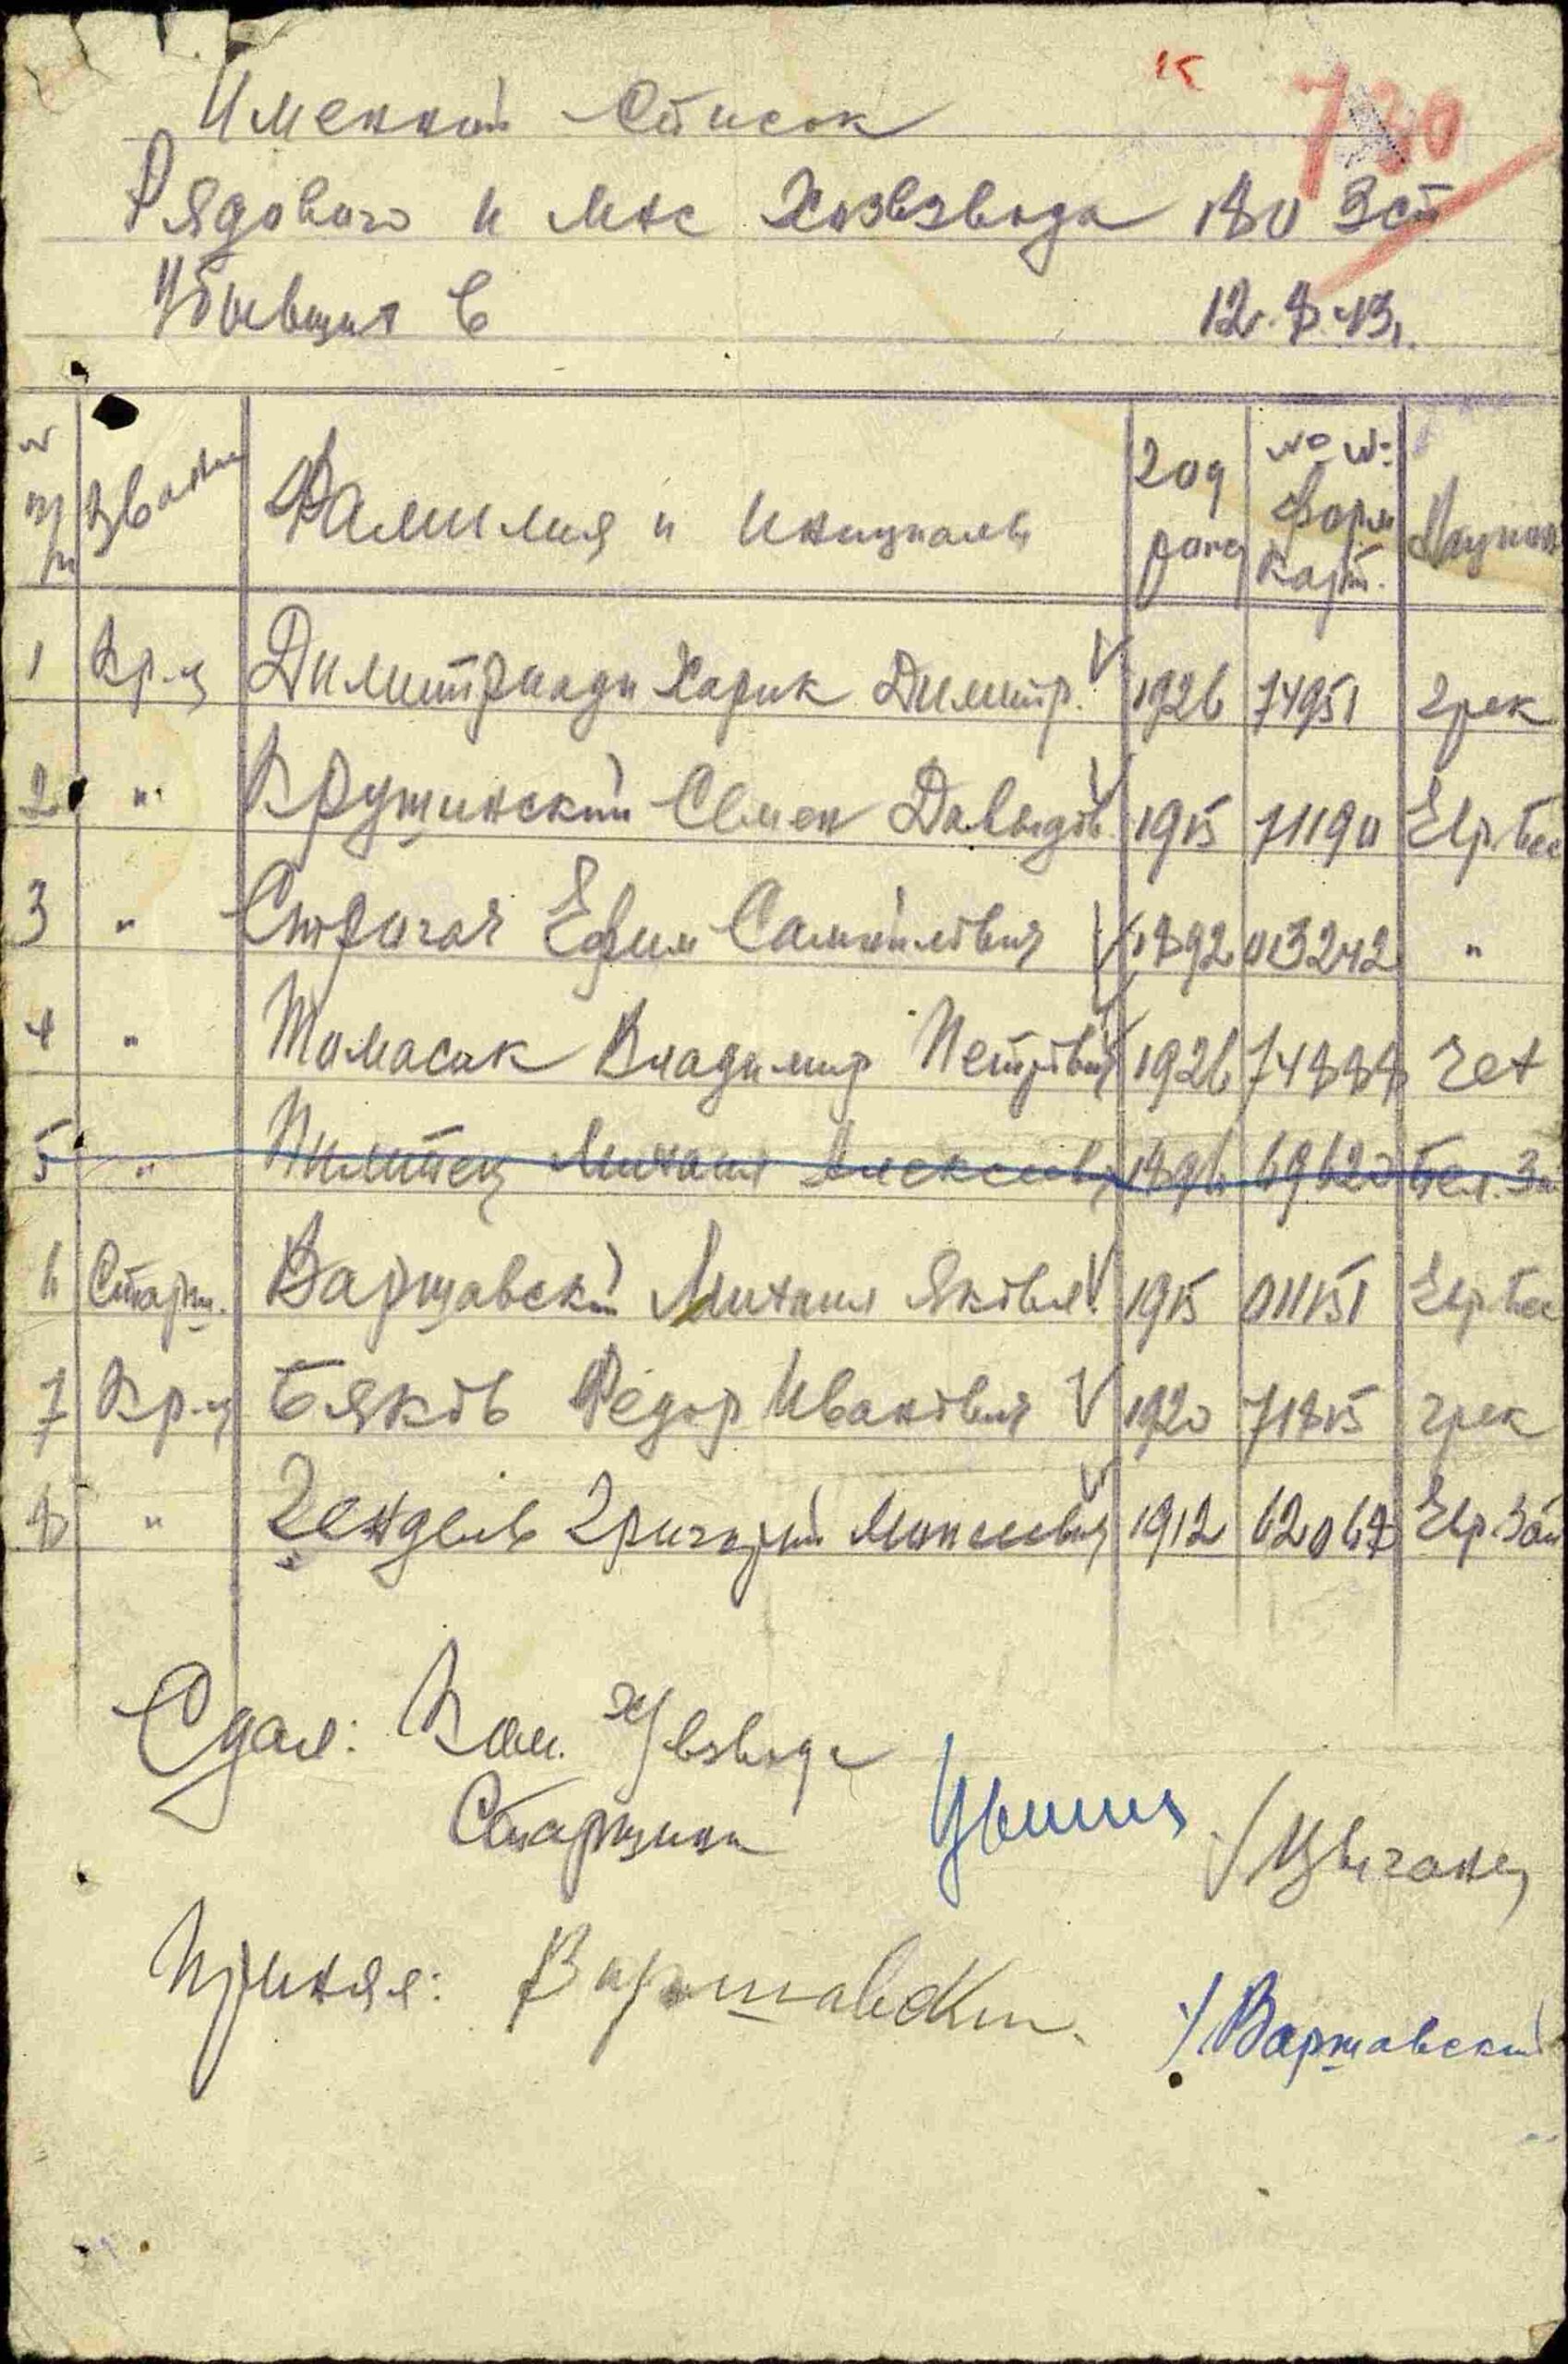 к 730
Именной Список
Рядового и мнс Хозвзвода 180 Зсп
Убывших в 12.8.43.
№ п/п Звание Фамилия и инициалы год рожд №№ форм карт. Национ
1 Кр-ц Димитриади Харик Димитр. V 1926 74951 грек
2 " Крушинский Семен Давыдов. V 1915 71190 Евр. Бес
3 " Строгач Ефим Самойлович V 1892 013242 "
4 " Томасок Владимир Петрович V 1926 74888 чех
5 " Михаил Алексеев 1896 69620 Бел. За
6 Старш. Варшавский Михаил Яковл. V 1915 01151 Евр Бес
7 Кр-ц Бяков Федор Иванович V 1920 71815 грек
8 " Гендель Григорий Моисеевич V 1912 62068 Евр. Зап
Сдал: Ком. Х/взвода
Старшина /Цыганец
Принял: Варшавский /Варшавский